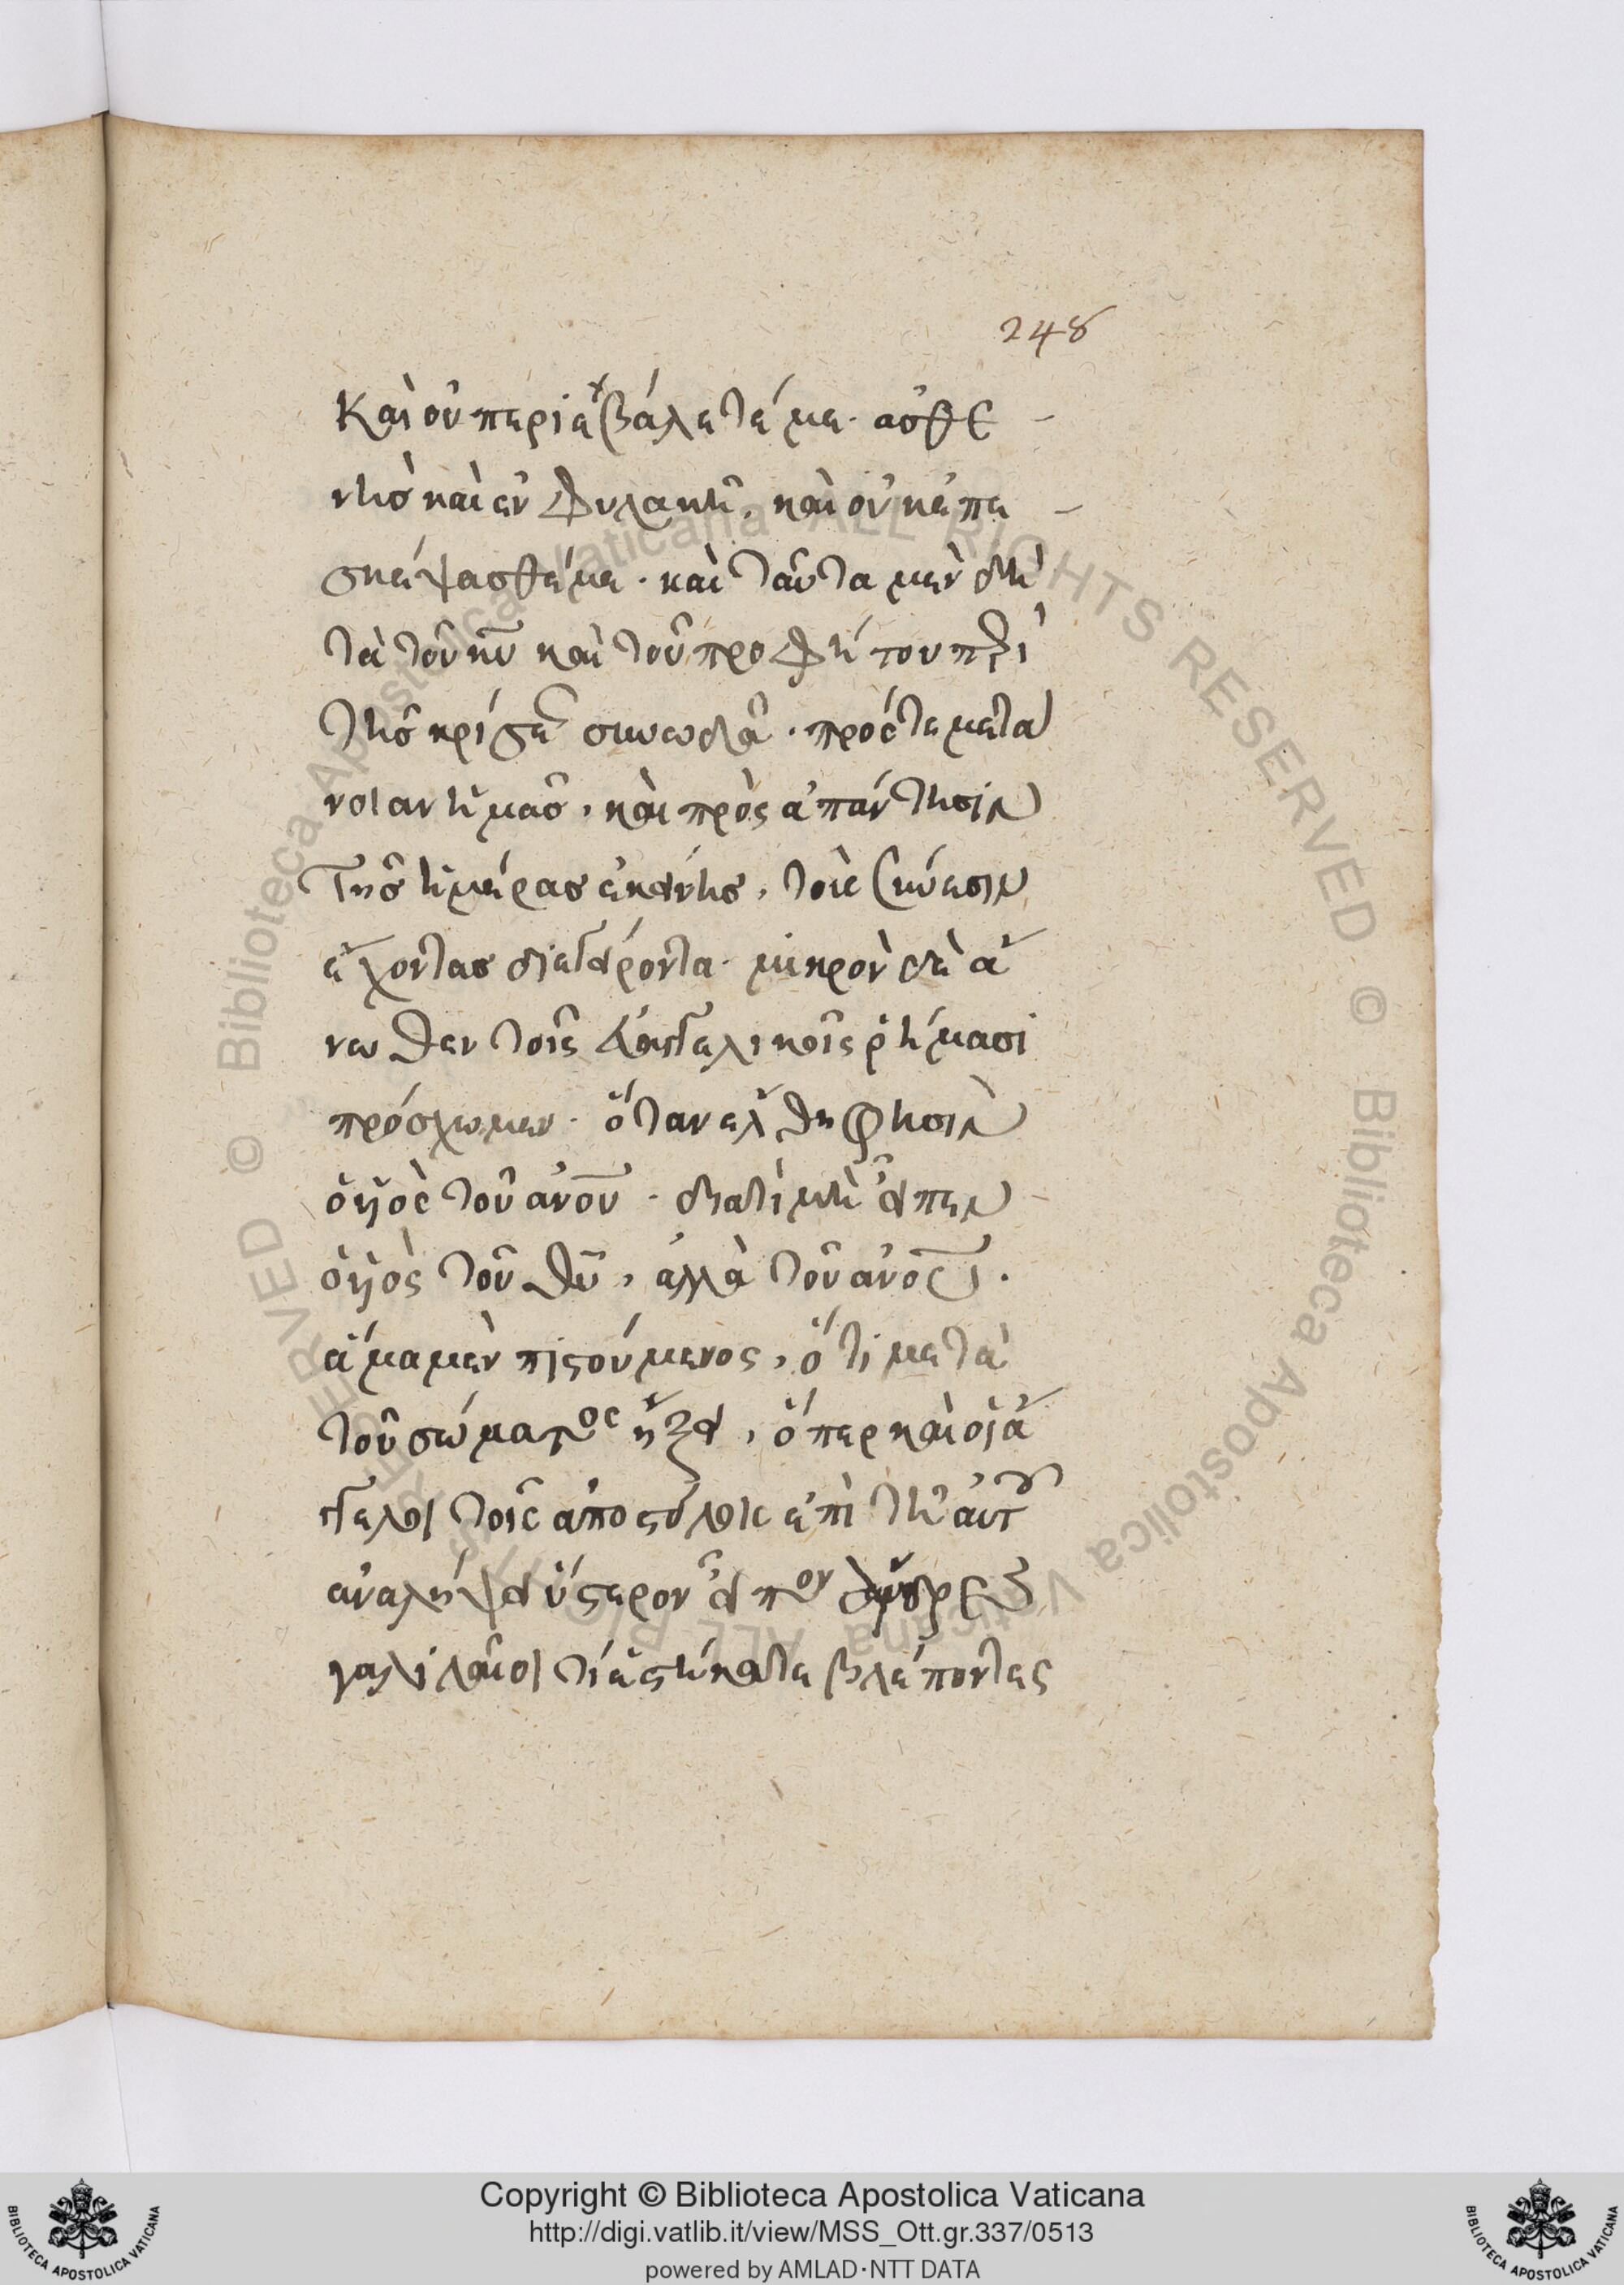 248
Καὶ οὐ περιεβάλετέ με· ἀσθε
νὴς καὶ ἐν φυλακῆ, καὶ οὐκ ἐπε
σκέψασθέ με· καὶ ταῦτα μὲν δὴ
τὰ τοῦ κυ καὶ τοῦ προφήτου περὶ
τῆς κρίσεως συνωδὰ· πρός τε μετά
νοιαν ἡμᾶς, καὶ πρὸς ἀπάντησιν
τῆς ἡμέρας ἐκείνης, τοὺς νοῦν
ἔχοντας διεγείροντα· μικρὸν δὲ ἄ
νωθεν τοῖς εὐαγγελικοῖς ῥήμασι
πρόσχωμεν· ὅταν ἔλθη φησὶν
ὁ υἱὸς τοῦ ἀνου· διατί μὴ εἶπεν
ὁ υἱὸς τοῦ θυ, ἀλλὰ τοῦ ἀνου·
ἅμα μὲν πιστούμενος, ὅτι μετὰ
τοῦ σώματος ἥξει, ὅπερ καὶ οἱ ἄγ
γελοι τοῖς ἀποστόλοις ἐπὶ τῆ αὐτοῦ
ἀναλήψει ὕστερον εἶπον ἄνδρες
γαλιλαῖοι τί ἑστήκατε βλέποντες
Copyright © Biblioteca Apostolica Vaticana
http://digi.vatlib.it/view/MSS_Ott.gr.337/0513
powered by AMLAD·NTT DATA
BIBLIOTECA APOSTOLICA VATICANA
BIBLIOTECA APOSTOLICA VATICANA
© Biblioteca Apostolica Vaticana ALL RIGHTS RESERVED © Biblioteca Apostolica Vaticana ALL RIGHTS RESERVED